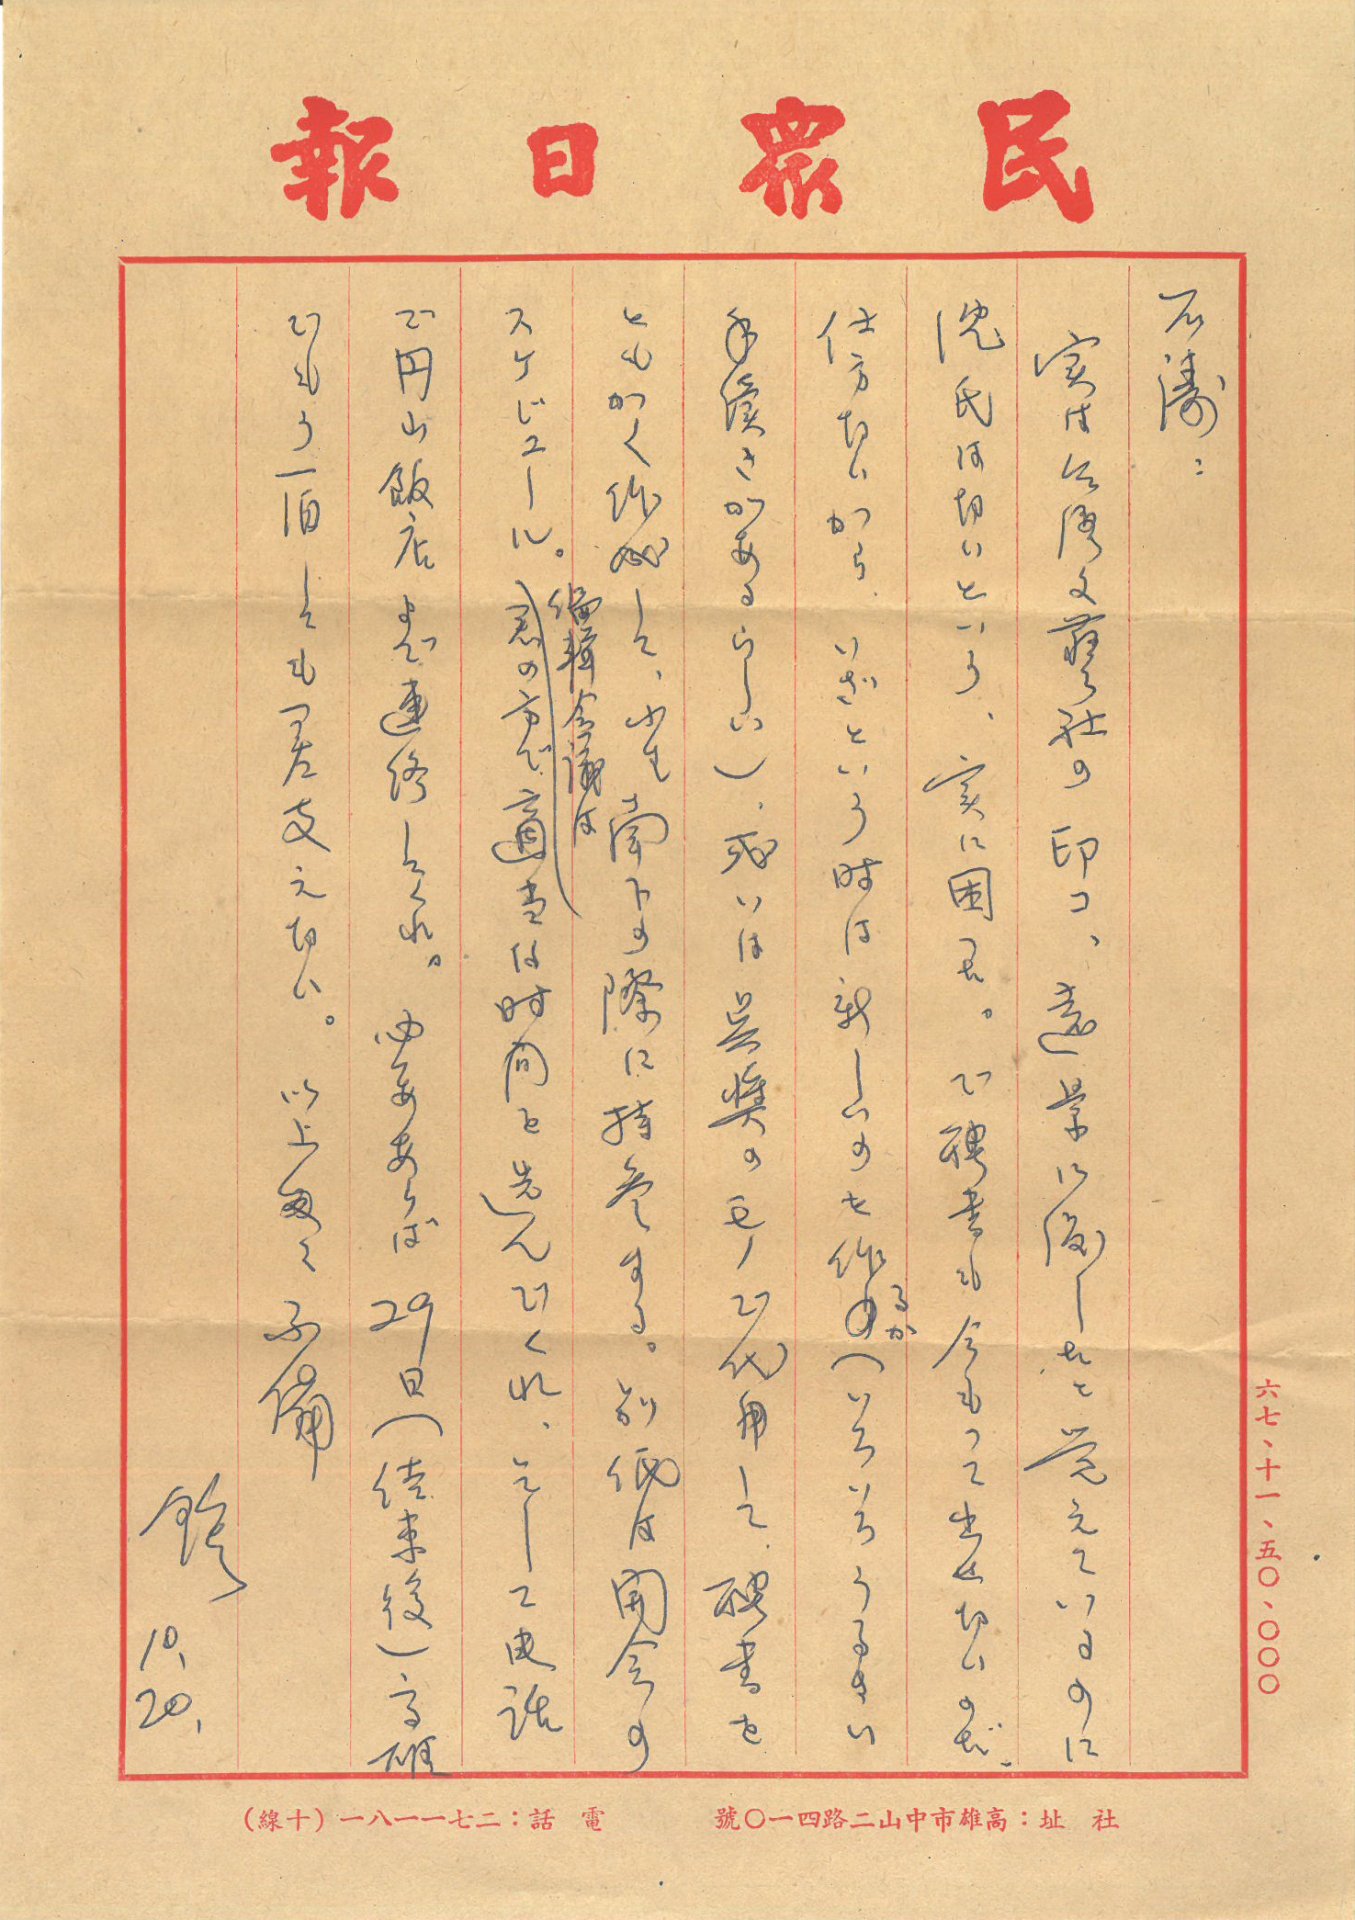 民眾日報
石濤：
実は台湾文藝社の印コ、遠景に渡したと覚えているのに
沈氏はないという、実に困った。で聘書も今もって出せないのだ、
仕方ないから、いざという時は新しいのを作るか（いろいろうるさい
手續きがあるらしい）、或いは呉奬のモノで代用して、聘書を
ともかく作成して、小生南下の際に持参する。別紙は開会の
スケジュール。編輯会議は君の方で適当な时间を选んでくれ、そして电話
で円山飯店まで連络してくれ。必要あらば29日（結束後）高雄
でもう一泊しても差支えない。以上匆々不備
鉄
10、20、
六七、十一、五〇、〇〇〇
社址：高雄市中山二路四一〇號
電話：二七一一一八一（十線）